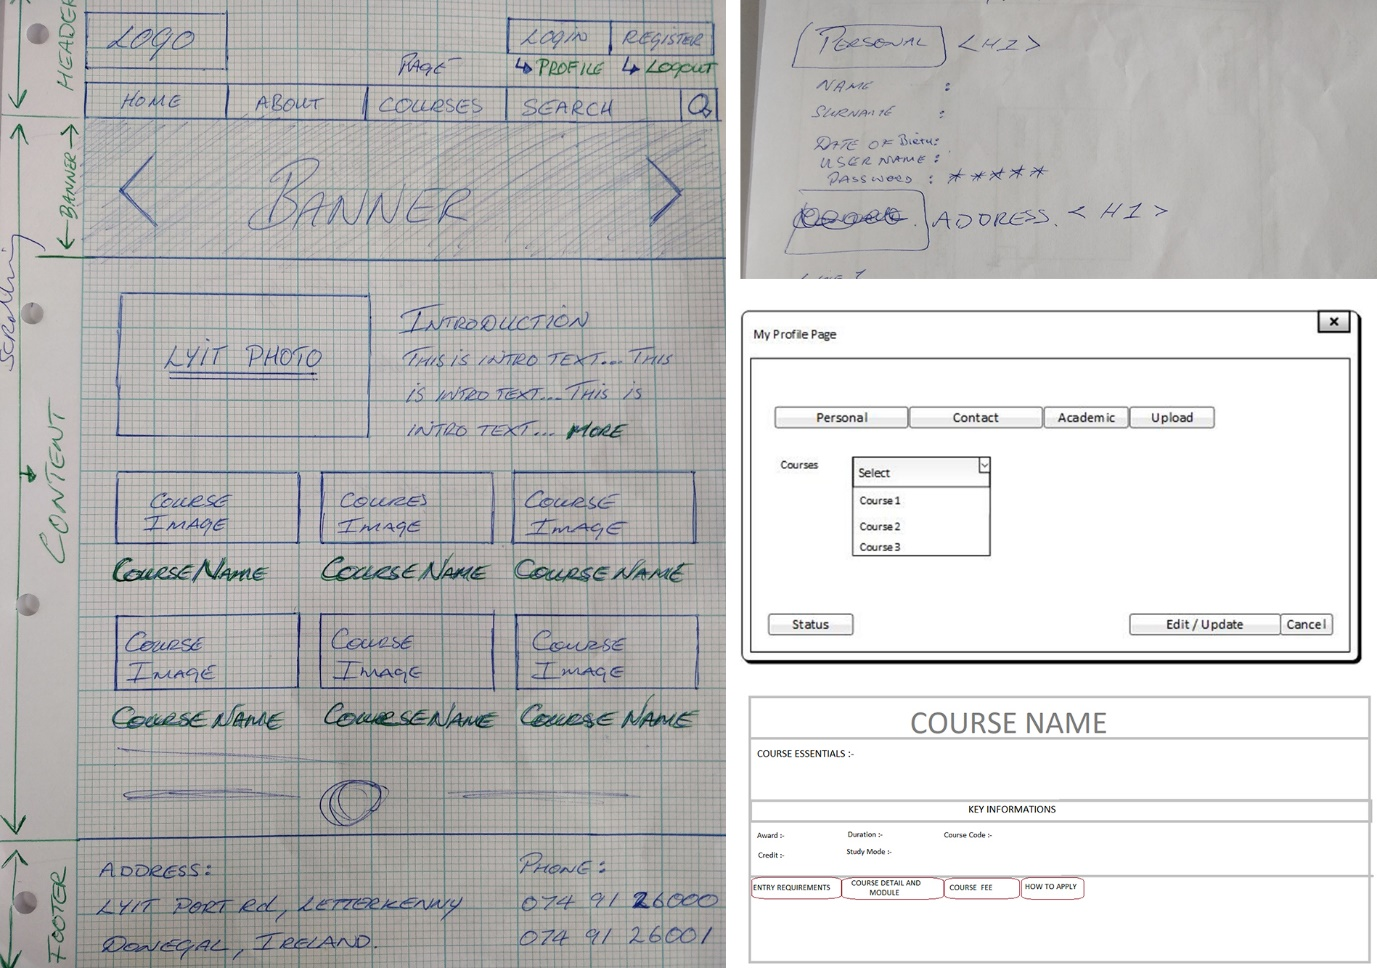 HEADER
LOGO
LOGIN REGISTER
PAGE ↳ PROFILE ↳ LOGOUT
HOME ABOUT COURSES SEARCH
BANNER
< BANNER >
SCROLLING
CONTENT
LYIT PHOTO
INTRODUCTION
THIS IS INTRO TEXT... THIS
IS INTRO TEXT... THIS IS
INTRO TEXT... MORE
COURSE IMAGE
COURES IMAGE
COURSE IMAGE
COURSE NAME COURSE NAME COURSE NAME
COURSE IMAGE
COURSE IMAGE
COURSE IMAGE
COURSE NAME COURSE NAME COURSE NAME
FOOTER
ADDRESS:
LYIT PORT Rd, LETTERKENNY
DONEGAL, IRELAND.
PHONE:
074 91 26000
074 91 26001
PERSONAL <H1>
NAME :
SURNAME :
DATE OF Birth:
USER NAME :
PASSWORD : *****
ADDRESS. <H1>
LINE 1
My Profile Page
Personal Contact Academic Upload
Courses Select
Course 1
Course 2
Course 3
Status Edit / Update Cancel
COURSE NAME
COURSE ESSENTIALS :-
KEY INFORMATIONS
Award :- Duration :- Course Code :-
Credit :- Study Mode :-
ENTRY REQUIREMENTS
COURSE DETAIL AND
MODULE
COURSE FEE
HOW TO APPLY